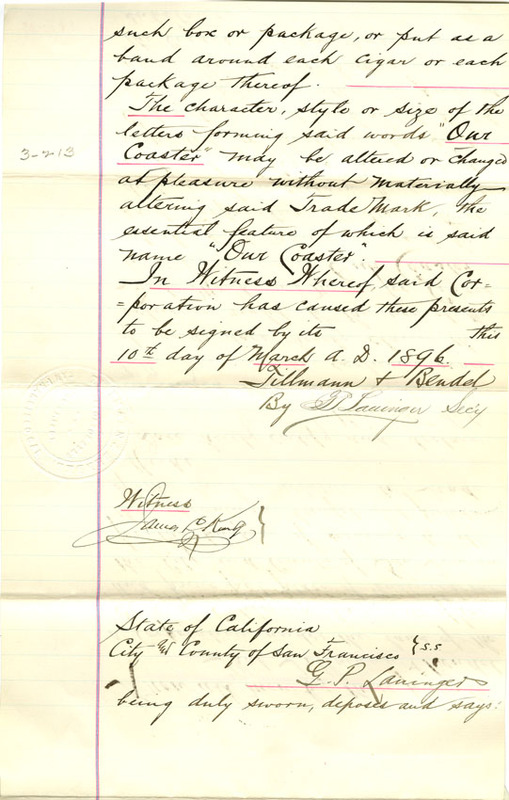 such box or package, or put as a
band around each cigar or each
package thereof.
The character, style or size of the
letters forming said words "Our
Coaster" may be altered or changed
at pleasure without materially
altering said Trade Mark, the
essential feature of which is said
name "Our Coaster".
In Witness Whereof, said Cor=
=poration has caused these presents
to be signed by its this
10th day of March A. D. 1896.
Tillmann & Bendel
By G. P. Lauinger Sec'y
3-2-13
Witness
James P. King }
State of California
City & County of San Francisco } S.S
G. P. Lauinger
being duly sworn, deposes and says: